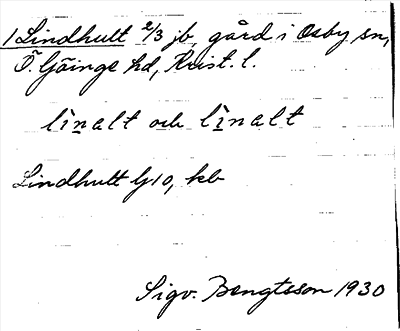 1 Lindhult 2/3 jb, gård i Osby sn,
Ö. Göinge hd, Krist. l.
lìnalt och lìnalt
Lindhult G10, kb
Sigv. Bengtsson 1930